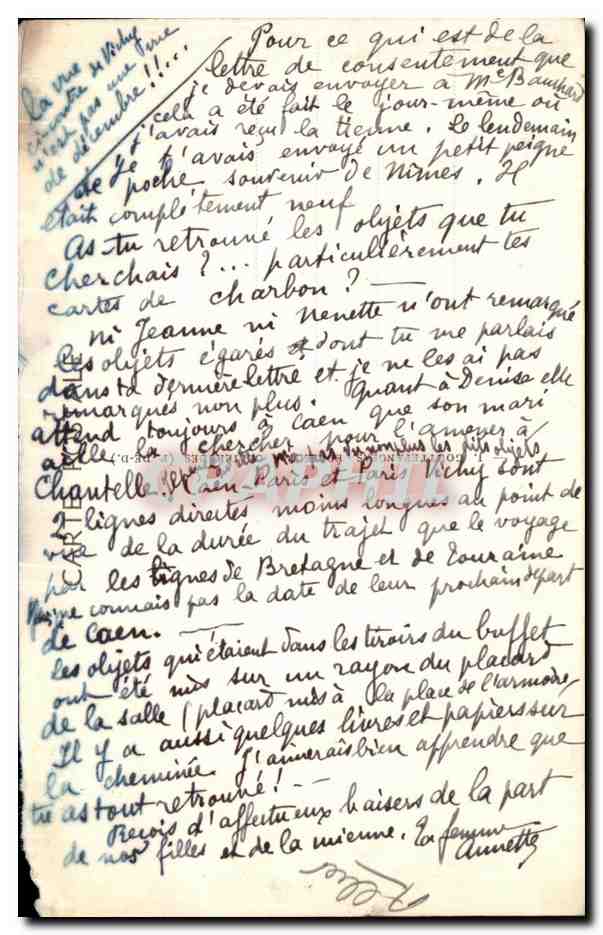 la vue
ci-contre de Vichy
n'est pas une vue
de décembre!!...
Pour ce qui est de la
lettre de consentement que
je devais envoyer à Me
cela a été fait le jour-même où
j'avais reçu la tienne. Le lendemain
je t'avais envoyé un petit peigne
de poche souvenir de Nîmes. Il
était complètement neuf
As-tu retrouvé les objets que tu
cherchais?... particulièrement tes
cartes de charbon? —
Ni Jeanne ni Nenette n'ont remarqué
les objets égarés dont tu me parlais
dans ta dernière lettre et je ne les ai pas
remarqués non plus. Quant à Denise elle
attend toujours à Caen que son mari
aille la chercher pour l'amener à
Chantelle. les ptits objets
Caen Paris et Paris Vichy sont
2 lignes directes moins longues au point de
vue de la durée du trajet que le voyage
par les lignes de Bretagne et de Touraine
je ne connais pas la date de leur prochain départ
de Caen. —
Les objets qui étaient dans les tiroirs du buffet
ont été mis sur un rayon du placard
de la salle (placard mis à la place de l'armoire)
Il y a aussi quelques livres et papiers sur
la cheminée. J'aimerais bien apprendre que
tu as tout retrouvé! —
Reçois d'affectueux baisers de la part
de nos filles et de la mienne. Ta femme
Annette
Allier
CARTE POSTALE
CPAPHIL